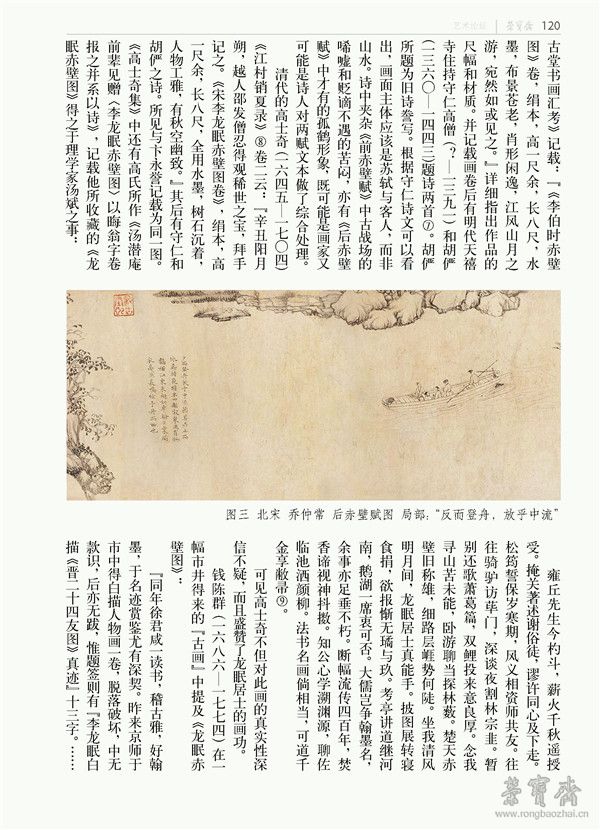 艺术论坛
荣宝斋
120
古堂书画汇考》记载：『《李伯时赤壁
图》卷，绢本，高一尺余，长八尺，水
墨，布景苍老，肖形闲逸，江风山月之
游，宛然如或见之。』详细指出作品的
尺幅和材质。并记载画卷后有明代天禧
寺住持守仁高僧（？—一三九一）和胡俨
（一三六〇—一四四三）题诗两首⑦。胡俨
所题为旧诗誊写。根据守仁诗文可以看
出，画面主体应该是苏轼与客人，而非
山水。诗中夹杂《前赤壁赋》中古战场的
唏嘘和贬谪不遇的苦闷，亦有《后赤壁
赋》中才有的孤鹤形象，既可能是画家又
可能是诗人对两赋文本做了综合处理。
清代的高士奇（一六四五—一七〇四）
《江村销夏录》⑧卷二云：『辛丑阳月
朔，越人邵发僧忍得观稀世之宝，拜手
记之。《宋李龙眠赤壁图卷》，绢本，高
一尺余，长八尺，全用水墨，树石沉着，
人物工雅，有秋空幽致。』其后有守仁和
胡俨之诗。所见与卞永誉记载为同一图。
《高士奇集》中还有高氏所作《汤潜庵
前辈见赠〈李龙眠赤壁图〉以晦翁字卷
报之并系以诗》，记载他所收藏的《龙
眠赤壁图》得之于理学家汤斌之事：
图三 北宋 乔仲常 后赤壁赋图 局部：“反而登舟，放乎中流”
雍丘先生今杓斗，薪火千秋遥授
受。掩关著述谢俗徒，谬许同心及下走。
松筠誓保岁寒期，风义相资师共友。往
往骑驴访荜门，深谈夜割林宗韭。暂
别还歌萧葛篇，双鲤投来意良厚。念我
寻山苦未能，卧游聊当探林薮。楚天赤
壁旧称雄，细路层崕势何陡。坐我清风
明月间，龙眠居士真能手。披图展转寝
食捐，欲报惭无璚与玖。考亭讲道继河
南，鹅湖一席衷可否。大儒岂争翰墨名，
余事亦足垂不朽。断幅流传四百年，焚
香谛视神抖擞。知公心学溯渊源，聊佐
临池洒颜柳。法书名画倘相当，可道千
金享敝帚⑨。
可见高士奇不但对此画的真实性深
信不疑，而且盛赞了龙眠居士的画功。
钱陈群（一六八六—一七七四）在一
幅市井得来的『古画』中提及《龙眠赤
壁图》：
『同年徐君咸一读书，稽古雅，好翰
墨，于名迹赏鉴尤有深契。昨来京师于
市中得白描人物画一卷，脱落破坏，中无
款识，后亦无跋，惟题签则有『李龙眠白
描《晋二十四友图》真迹』十三字。……
荣宝斋
www.rongbaozhai.cn